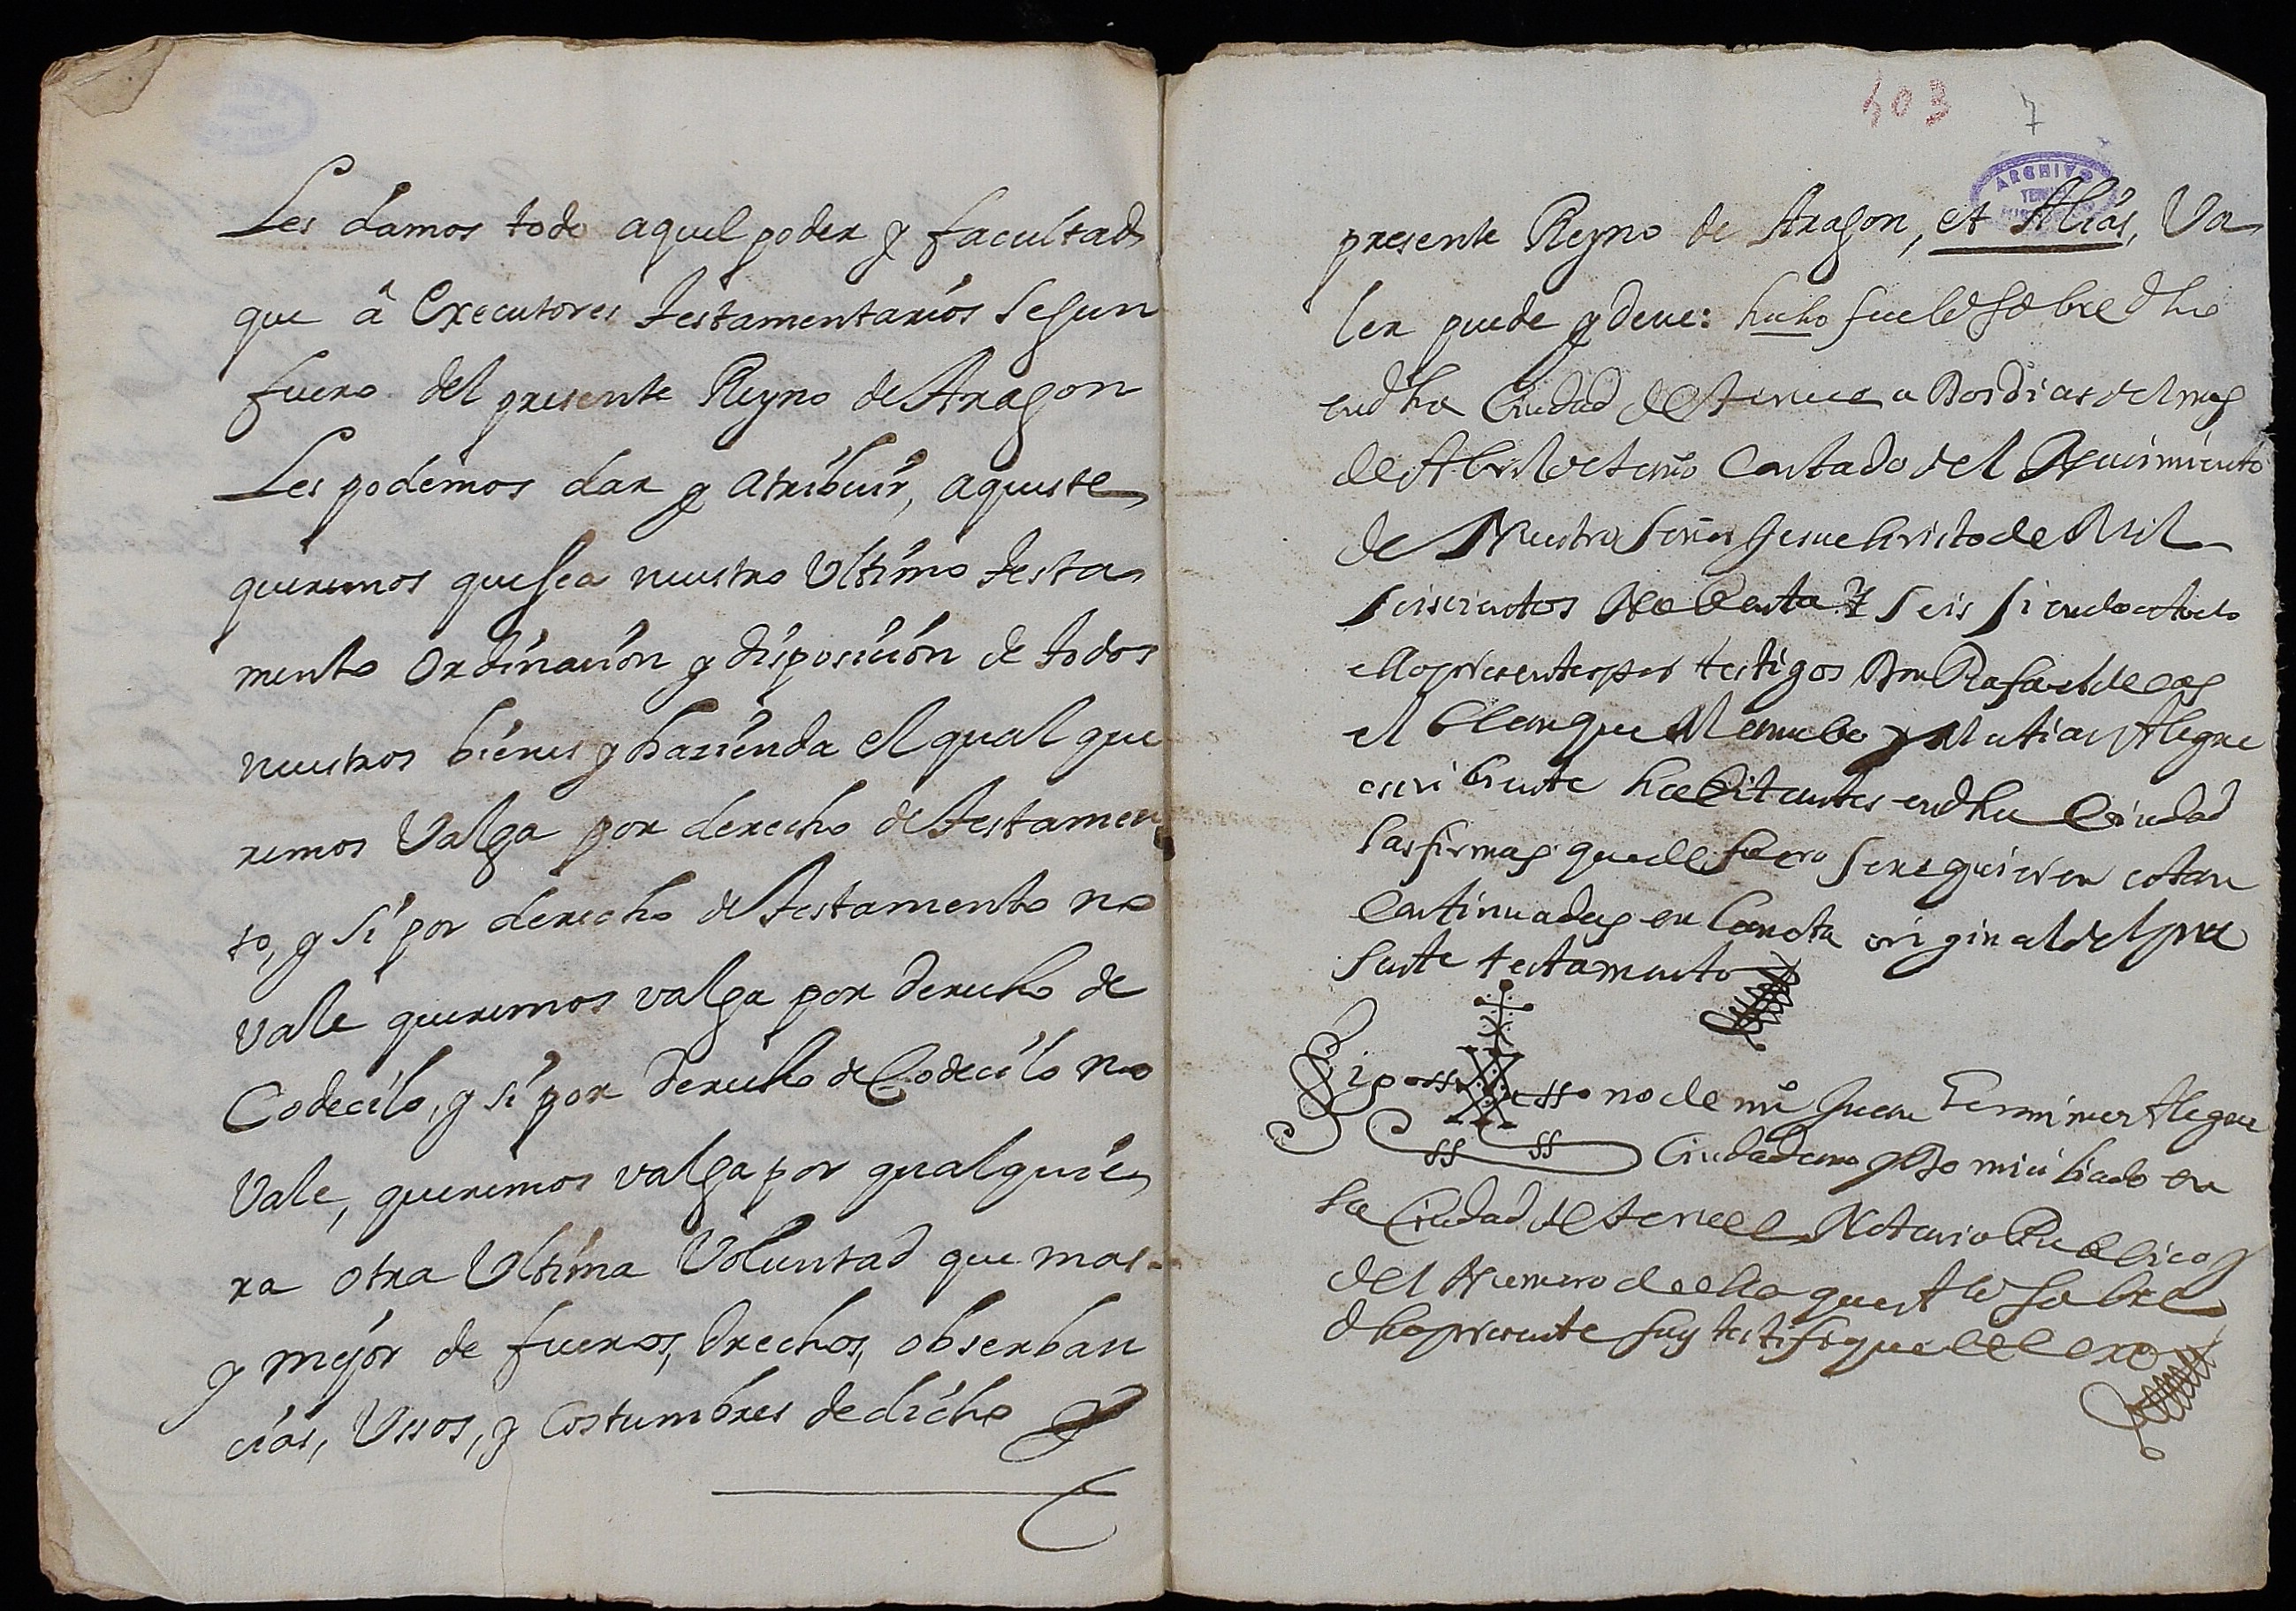 Les damos todo aquel poder y facultad
que â Executores testamentarios segun
fuero del presente Reyno de Aragon
Les podemos dar y atribuir, aqueste
queremos que sea nuestro Ultimo testa
mento Ordinacion y disposicion de todos
nuestros bienes y hazienda el qual que
remos Valga por derecho de testamen
to, y si por derecho de testamento no
vale queremos valga por derecho de
Codecilo, y si por derecho de Codecilo no
Vale, queremos valga por qualquie
ra otra Ultima Voluntad que mas
y mejor de fueros, Drechos, obserban
cias, Ussos, y Costumbres de dicho
403 7
ARCHIVO
presente Reyno de Aragon, et Alias, Va
ler puede y deue: hecho fue lo sobredho
en dha Ciudad de Teruel a Dos dias del mes
de Abril del año Contado del Nacimiento
de Nuestro Señor Jesuchristo de Mil
seiscientos Nobenta y seis siendo a todo
ello presentes por testigos Dn Rafael de
el Blanque Mancebo y Matias Alegre
escribiente habitantes en dha Ciudad
las firmas que de fuero se requieren estan
Continuadas en la nota original del pre
sente testamento
Sig no de mi Juan Alegre
Ciudadano y Domiciliado en
la Ciudad de Teruel Notario Publico y
del Numero de ella que a lo sobre
dho presente fuy testifique et cerre